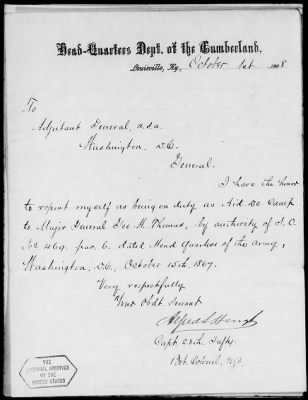 Head-Quarters Dept. of the Cumberland.
Louisville, Ky., October 1st 1868
To
Adjutant General, U.S.A.
Washington, D.C.
General.
I have the honor
to report myself as being on duty as Aid De Camp
to Major General Geo. H. Thomas, by authority of S.O.
No 469. par 6. dated Head Quarters of the Army,
Washington, D.C., October 15th 1867.
Very respectfully
Your Obdt. Servant
Alfred L. Hough
Capt
Bvt. Colonel, U.S.A.
THE
NATIONAL ARCHIVES
OF THE
UNITED STATES